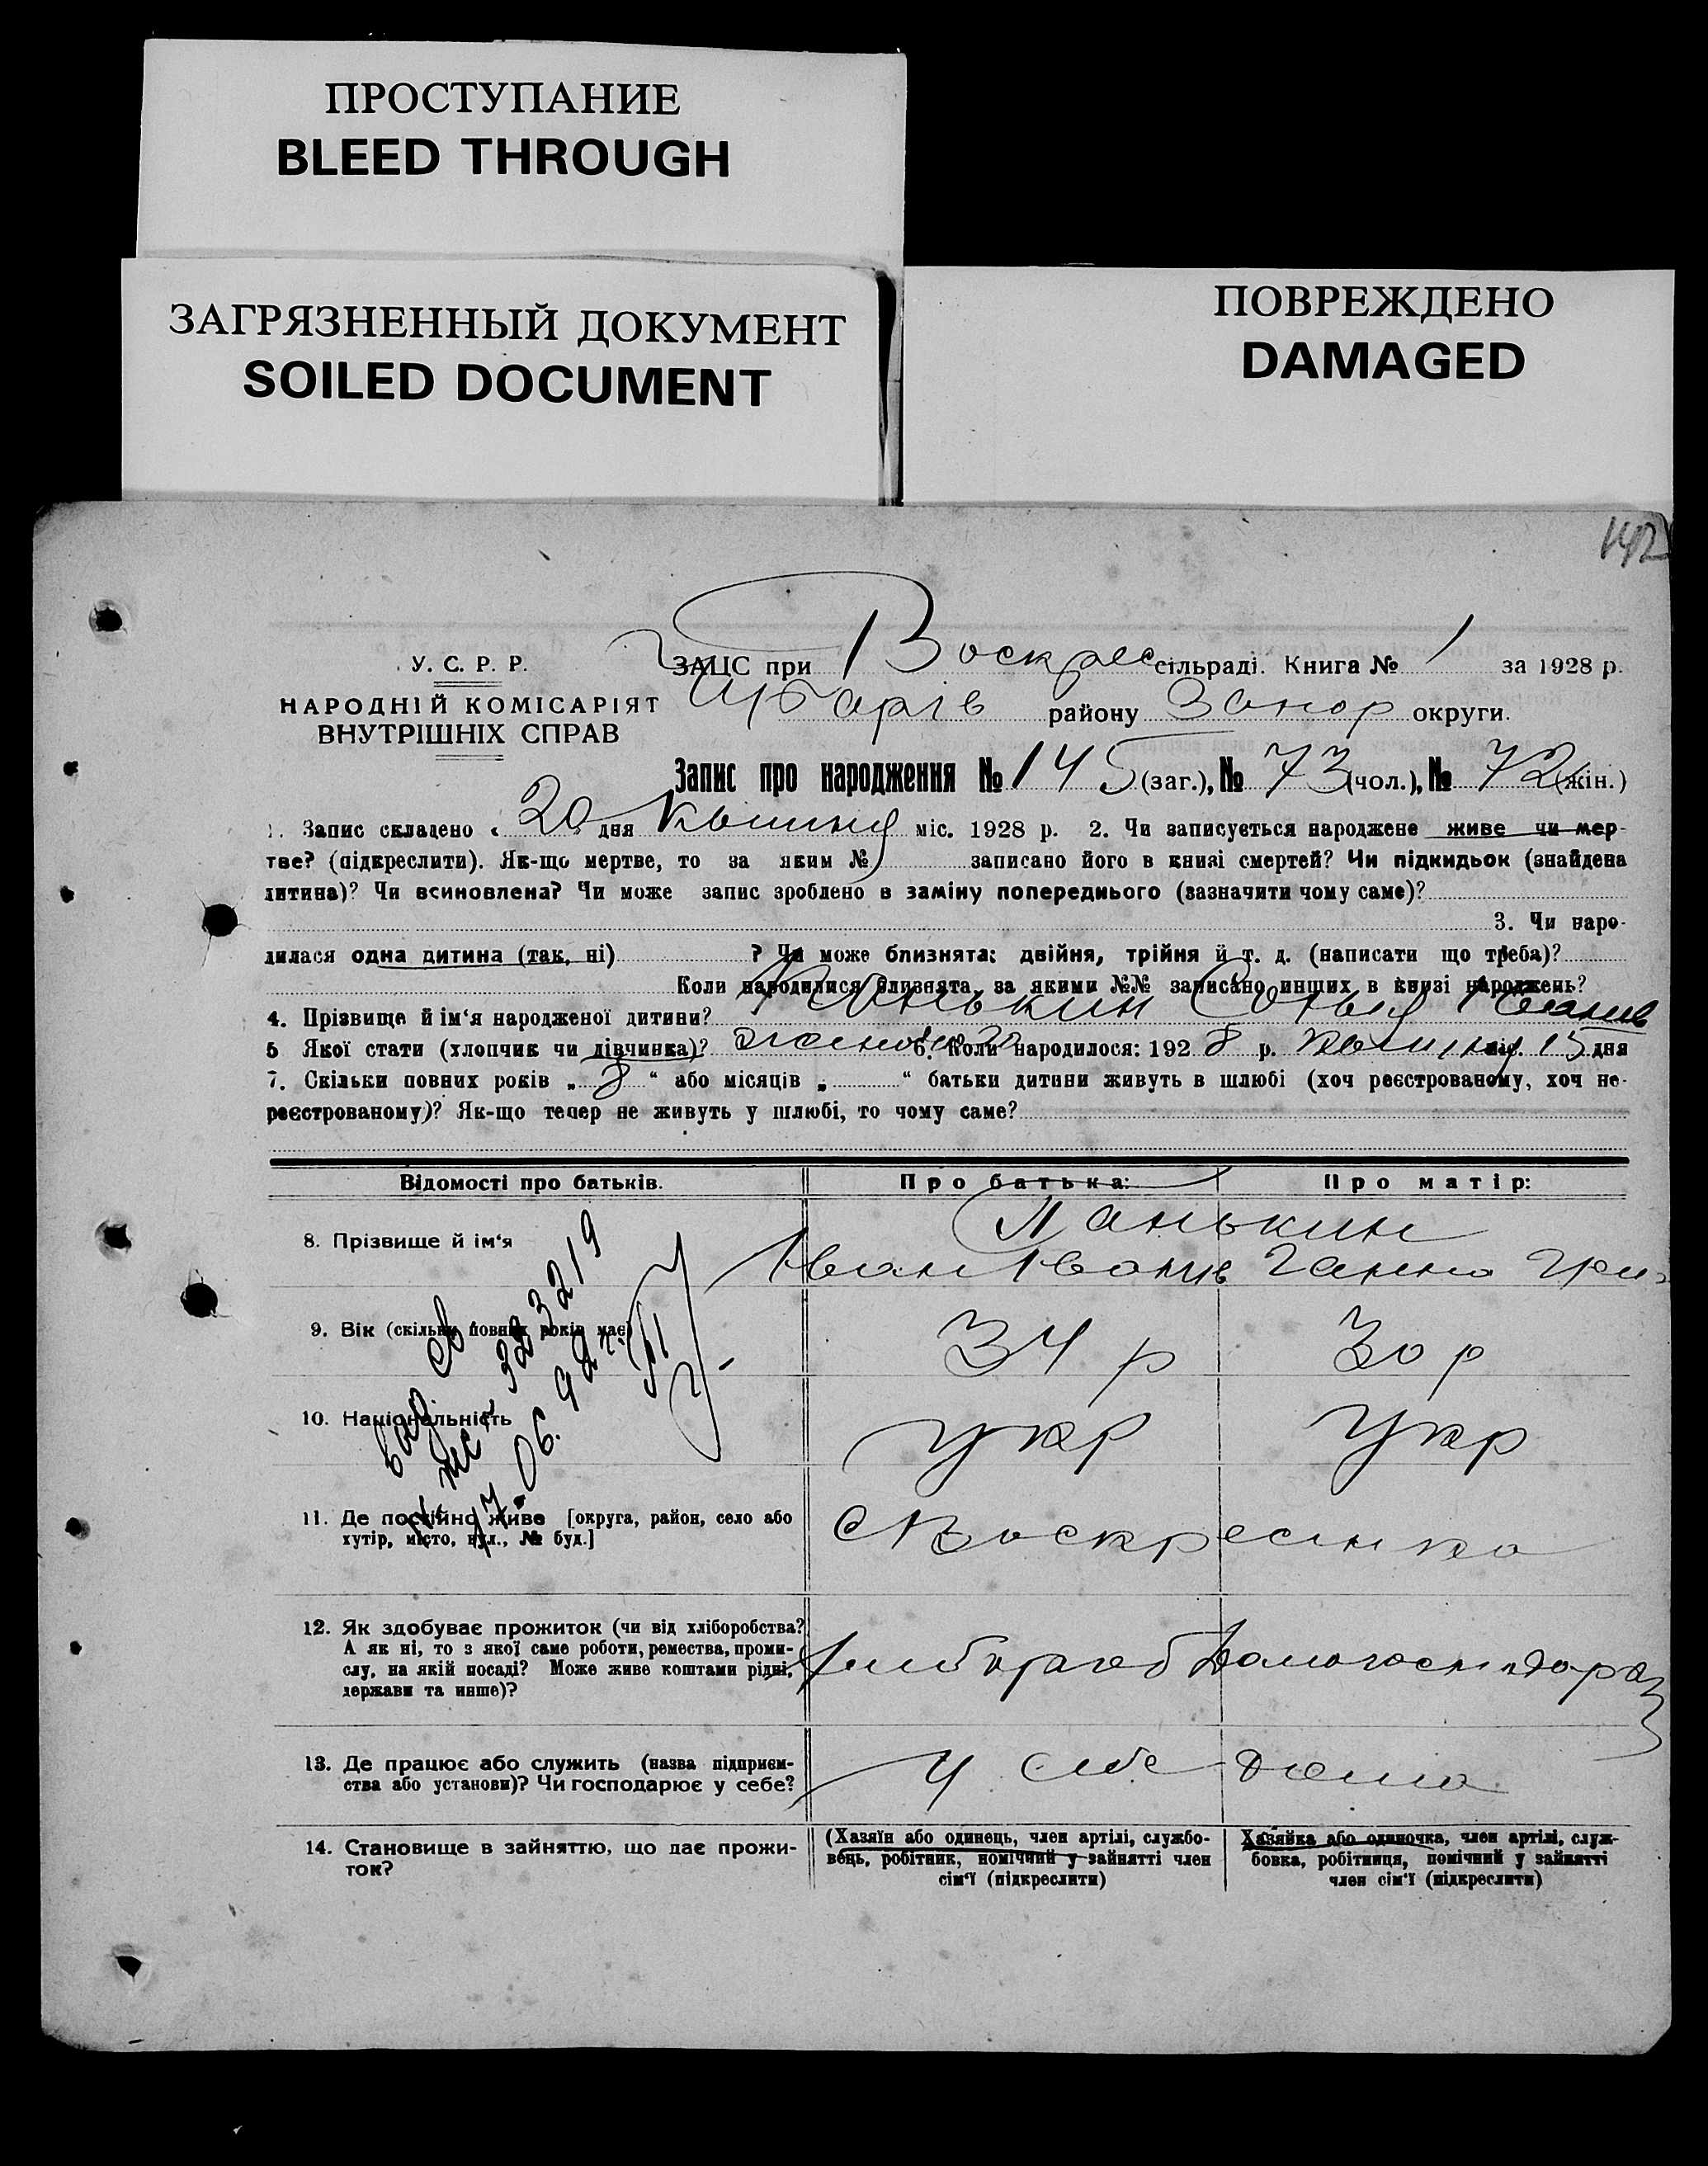 ПРОСТУПАНИЕ
BLEED THROUGH
ЗАГРЯЗНЕННЫЙ ДОКУМЕНТ
SOILED DOCUMENT
ПОВРЕЖДЕНО
DAMAGED
142
У. С. Р. Р.
НАРОДНІЙ КОМІСАРІЯТ
ВНУТРІШНІХ СПРАВ
ЗАЦС при Воскрес сільраді. Книга № 1 за 1928 р.
району Запор округи.
Запис про народження № 145 (заг.), № 73 (чол.), № 72 (жін.)
1. Запис складено « 20 дня міс. 1928 р. 2. Чи записується народжене живе чи мер-
тве? (підкреслити). Як-що мертве, то за яким № записано його в книзі смертей? Чи підкидьок (знайдена
дитина)? Чи всиновлена? Чи може запис зроблено в заміну попереднього (зазначити чому саме)?
3. Чи наро-
дилася одна дитина (так, ні) ? Чи може близнята: двійня, трійня й т. д. (написати що треба)?
Коли народилися близнята, за якими №№ записано инших в книзі народжень?
4. Прізвище й ім‘я народженої дитини?
5 Якої стати (хлопчик чи дівчинка)? 6. Коли народилося: 1928 р. міс. 15 дня
7. Скільки повних років „ 8 “ або місяців „ “ батьки дитини живуть в шлюбі (хоч реєстрованому, хоч не-
реєстрованому)? Як-що тепер не живуть у шлюбі, то чому саме?
Відомості про батьків. Про батька: Про матір:
8. Прізвище й ім‘я
Іван Ганна
9. Вік (скільки повних років має) 34 р 30 р
10. Національність укр укр
11. Де постійно живе [округа, район, село або
хутір, місто, вул., № буд.]
с Воскресенка
12. Як здобуває прожиток (чи від хліборобства?
А як ні, то з якої саме роботи, ремества, проми-
слу, на якій посаді? Може живе коштами рідні,
держави та инше)?
13. Де працює або служить (назва підприєм-
ства або установи)? Чи господарює у себе?
У себе дома
14. Становище в зайняттю, що дає прожи-
ток?
(Хазяїн або одинець, член артілі, службо-
вець, робітник, помічний у зайнятті член
сім‘ї (підкреслити)
Хазяйка або одиночка, член артілі, служ-
бовка, робітниця, помічний у зайнятті
член сім‘ї (підкреслити)